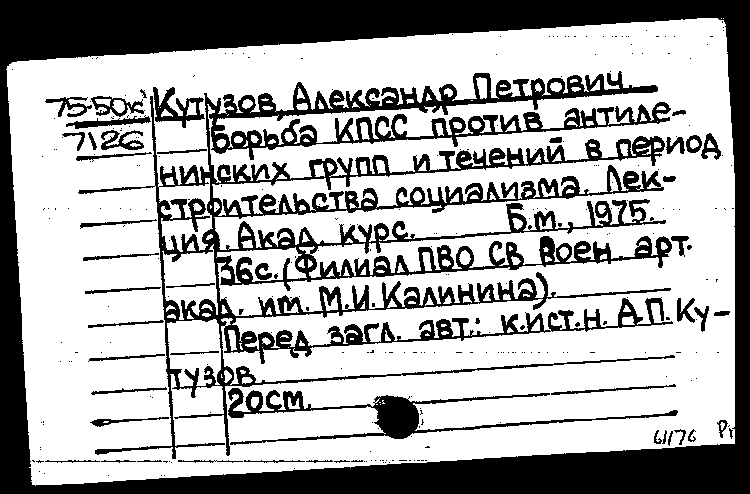 75-50к Кутузов, Александр Петрович.
7126 Борьба КПСС против антиле-
нинских групп и течений в период
строительства социализма. Лек-
ция. Акад. курс. Б.м., 1975.
36с. (Филиал ПВО СВ Воен. арт.
акад. им. М.И.Калинина).
Перед загл. авт.: к.ист.н. А.П.Ку-
тузов.
20см.
61176